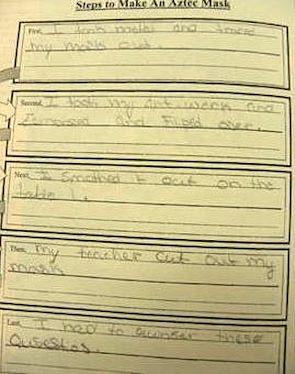 Steps to Make An Aztec Mask
First, I took metal and traced
my mask out.
Second, I took my art work and
and fliped over.
Next, I smothed it out on the
table.
Then, My teacher cut out my
mask
Last, I had to these
Qusestos.